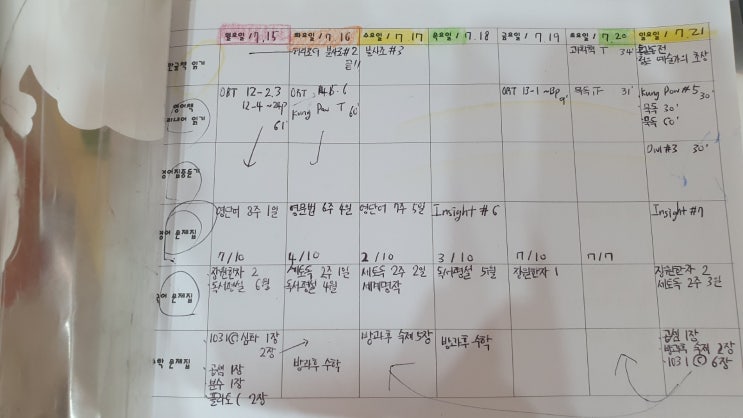 월요일 / 7.15 화요일 / 7.16 수요일 / 7.17 목요일 / 7.18 금요일 / 7.19 토요일 / 7.20 일요일 / 7.21
한글책 읽기
#2
끝!!
분사소 #3
과학책 T 34'
젊은 예술가의 초상
영어책
ORT 12-2,3
12-4 ~24p
61'
ORT
Kung Pow T 60'
ORT 13-1 ~8p
9'
묵독 T 31'
Kung Pow #5 30'
묵독 30'
묵독 60'
영어집중듣기
Owl #3 30'
영어 문제집
영단어 8주 1일
영문법 6주 4일
영단어 7주 5일
Insight #6
Insight #7
7/10 4/10 2/10 3/10 7/10 7/7
국어 문제집
장원한자 2
독서평설 6월
세토독 2주 1일
독서평설 4월
세토독 2주 2일
세계명작
독서평설 5월
장원한자 1
장원한자 2
세토독 2주 3일
수학 문제집
1031 Ⓒ 심화 1장
2장
곱셈 1장
분수 1장
플라토 C 2장
방과후 수학
방과후 숙제 5장
방과후 수학
곱셈 1장
방과후 숙제 2장
1031 Ⓒ 6장